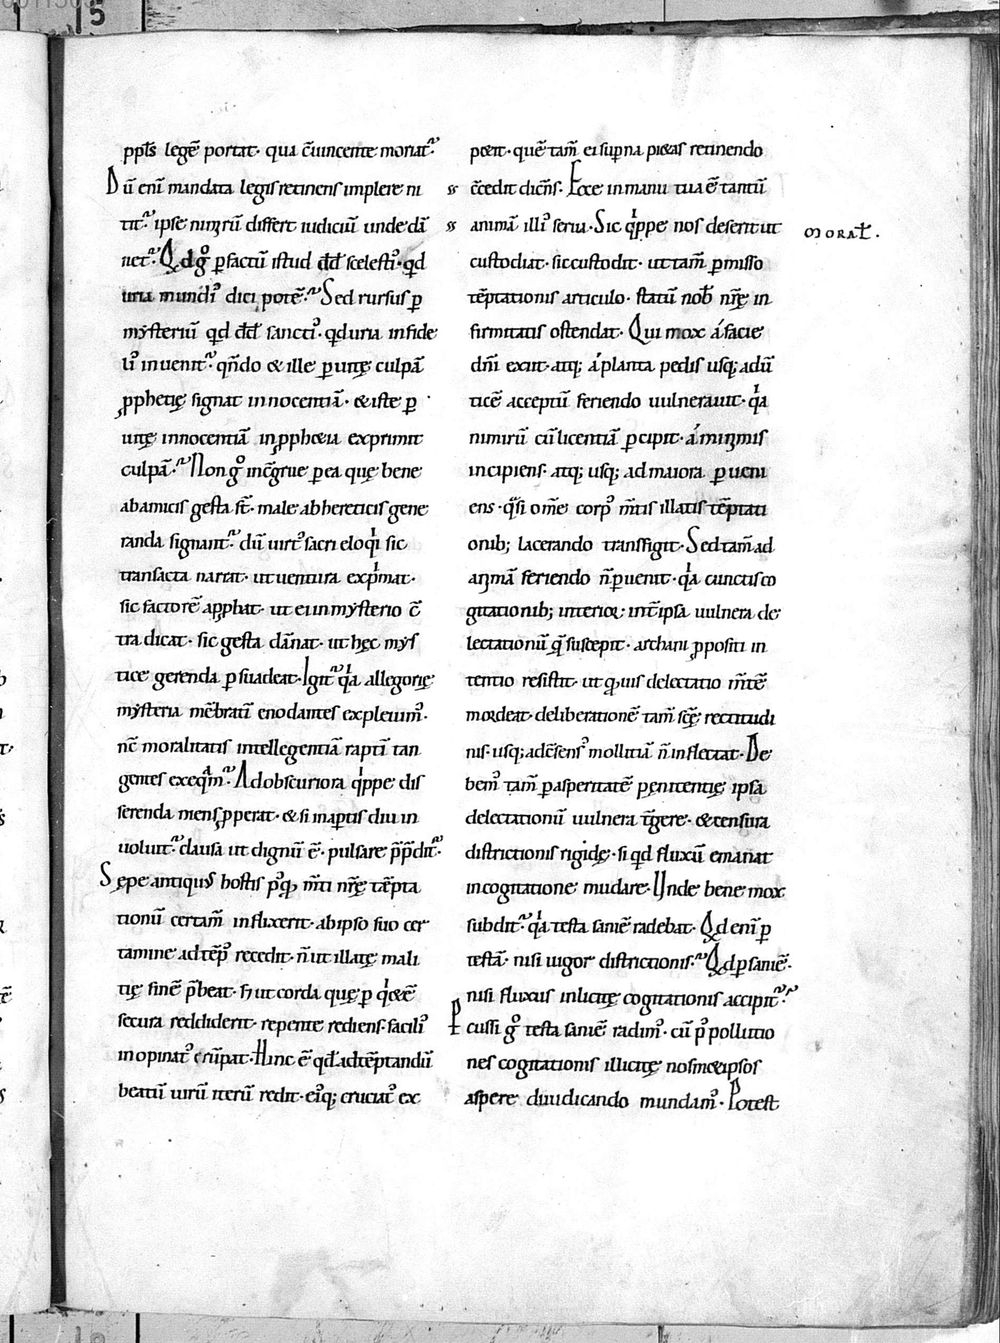 ppłs legē portat· qua c̄uincente moriat᷑·
Dū eni mandata legis retinens implere ni
tit᷑· ipse nimirū differt iudiciū unde dā
net᷑· Qd gͦ ꝑ factū istud dd̄ scelesti᷒· qd
uria mundi᷒ dici potē· Sed rursus ꝑ
mysteriū qd dd̄ sancti᷒· qd uria infide
li᷒ inuenit᷑· qn̄do & ille ꝑ uitę culpā
ꝓphetię signat innocentiā· & iste ꝑ
uitę innocentiā in ꝓphetia exprimit
culpā· Non gͦ inc̄grue ꝑ ea quę bene
ab amicis gesta st̄· male ab hereticis gene
randa signant᷑· dū uirt᷒ sacri eloqͥi sic
transacta narrat· ut uentura expͥmat·
sic factorē apꝓbat· ut ei in mysterio c̄
tra dicat· sic gesta dānat· ut hęc mys
tice gerenda ꝑsuadeat· Igit᷑ qͥa allegorię
mysteria mēbratī enodantes expleuim᷒·
nc̄ moralitatis intellegentiā raptī tan
gentes exeqͣm᷑· Ad obscuriora qͥppe dis
serenda mens ꝓperat· & si in aꝑtis diu in
uoluit᷑· clausa ut dignū ē· pulsare p̄pedit᷑·
Sępe antiquus hostis p᷒qͣ m̄ti nr̄ę tēpta
tionū certam̄ inflixerit· ab ipso suo cer
tamine ad tēp᷒ recedit· n̄ ut illatę mali
tię finē p̄beat· sꝫ ut corda quę ꝑ qͥetē
secura reddiderit· repente rediens· facili᷒
inopinat᷒ erūpat· Hinc ē qd ad tēptandū
beatū uirū iterū redit· ei᷒qꝫ cruciat᷒ ex
petit· quē tam̄ ei sup̄na pietas retinendo
c̄cedit dicēs· Ecce in manu tua ē tantū
animā illi᷒ serua· Sic qͥppe nos deserit ut
custodiat· sic custodit· ut tam̄ ꝑmisso
tēptationis articulo· statū nob̄ nr̄ę in
firmitatis ostendat· Qui mox á facie
dn̄i exiit· atqꝫ á planta pedis usqꝫ ad ū
ticē acceptū feriendo uulnerauit· qͥa
nimirū cū licentiā ꝑcipit· á minimis
incipiens· atqꝫ usqꝫ ad maiora ꝑueni
ens· qͣsi om̄e corp᷒ m̄tis illatis tēptati
onibꝫ lacerando transfigit· Sed tam̄ ad
animā feriendo n̄ ꝑuenit· qͥa cunctis co
gitationibꝫ interior int̄ ipsa uulnera de
lectationū q̄ suscepit· archani ꝓpositi in
tentio resistit· ut qͣuis delectatio m̄tē
mordeat· deliberationē tam̄ scę̄ rectitudi
nis· usqꝫ ad c̄sens᷒ mollitiā n̄ inflectat· De
bem᷒ tam̄ ꝑ asperitatē pęnitentię ipsa
delectationū uulnera t̄gere· & censura
districtionis rigidę· si qd fluxū emanat
in cogitatione mudare· Unde bene mox
subdit᷑· qͥa testa saniē radebat· Qd enī ꝑ
testā· nisi uigor districtionis· Qd ꝑ saniē·
nisi fluxus inlicitę cogitationis accipit᷑·
Pcussi gͦ testa saniē radim᷒· cū p᷒ pollutio
nes cogitationis illicitę nosmetipsos
aspere diiudicando mundam᷒· Potest
MORAL̄·